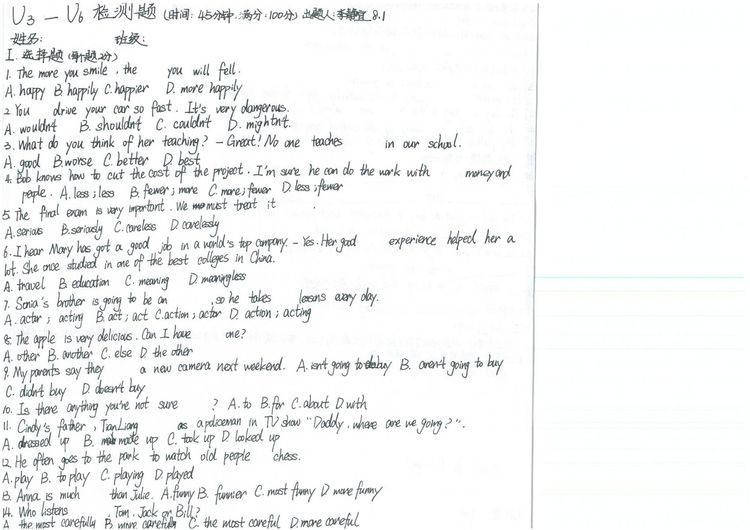 U3 — U6 检测题 (时间: 45分钟, 满分: 100分) 出题人: 8.1
姓名: 班级:
I. 选择题 (每小题2分)
1. The more you smile, the you will fell.
A. happy B. happily C. happier D. more happily
2. You drive your car so fast. It's very dangerous.
A. wouldn't B. shouldn't C. couldn't D. mightn't.
3. What do you think of her teaching? - Great! No one teaches in our school.
A. good B. worse C. better D. best
4. Bob knows how to cut the cost of the project. I'm sure he can do the work with money and
people. A. less; less B. fewer; more C. more; fewer D. less; fewer
5. The final exam is very important. We must treat it .
A. serious B. seriously C. careless D. carelessly
6. I hear Mary has got a good job in a world's top company. - Yes. Her good experience helped her a
lot. She once studied in one of the best colleges in China.
A. travel B. education C. meaning D. meaningless
7. Sonia's brother is going to be an , so he takes lessons every day.
A. actor; acting B. act; act C. action; actor D. action; acting
8. The apple is very delicious. Can I have one?
A. other B. another C. else D. the other
9. My parents say they a new camera next weekend. A. isn't going to buy B. aren't going to buy
C. didn't buy D. doesn't buy
10. Is there anything you're not sure ? A. to B. for C. about D. with
11. Cindy's father, Tian Liang as a policeman in TV show "Daddy, where are we going?".
A. dressed up B. made up C. took up D. looked up
12. He often goes to the park to watch old people chess.
A. play B. to play C. playing D. played
13. Anna is much than Julie. A. funny B. funnier C. most funny D. more funny
14. Who listens , Tom, Jack or Bill?
A. the most carefully B. more carefully C. the most careful D. more careful